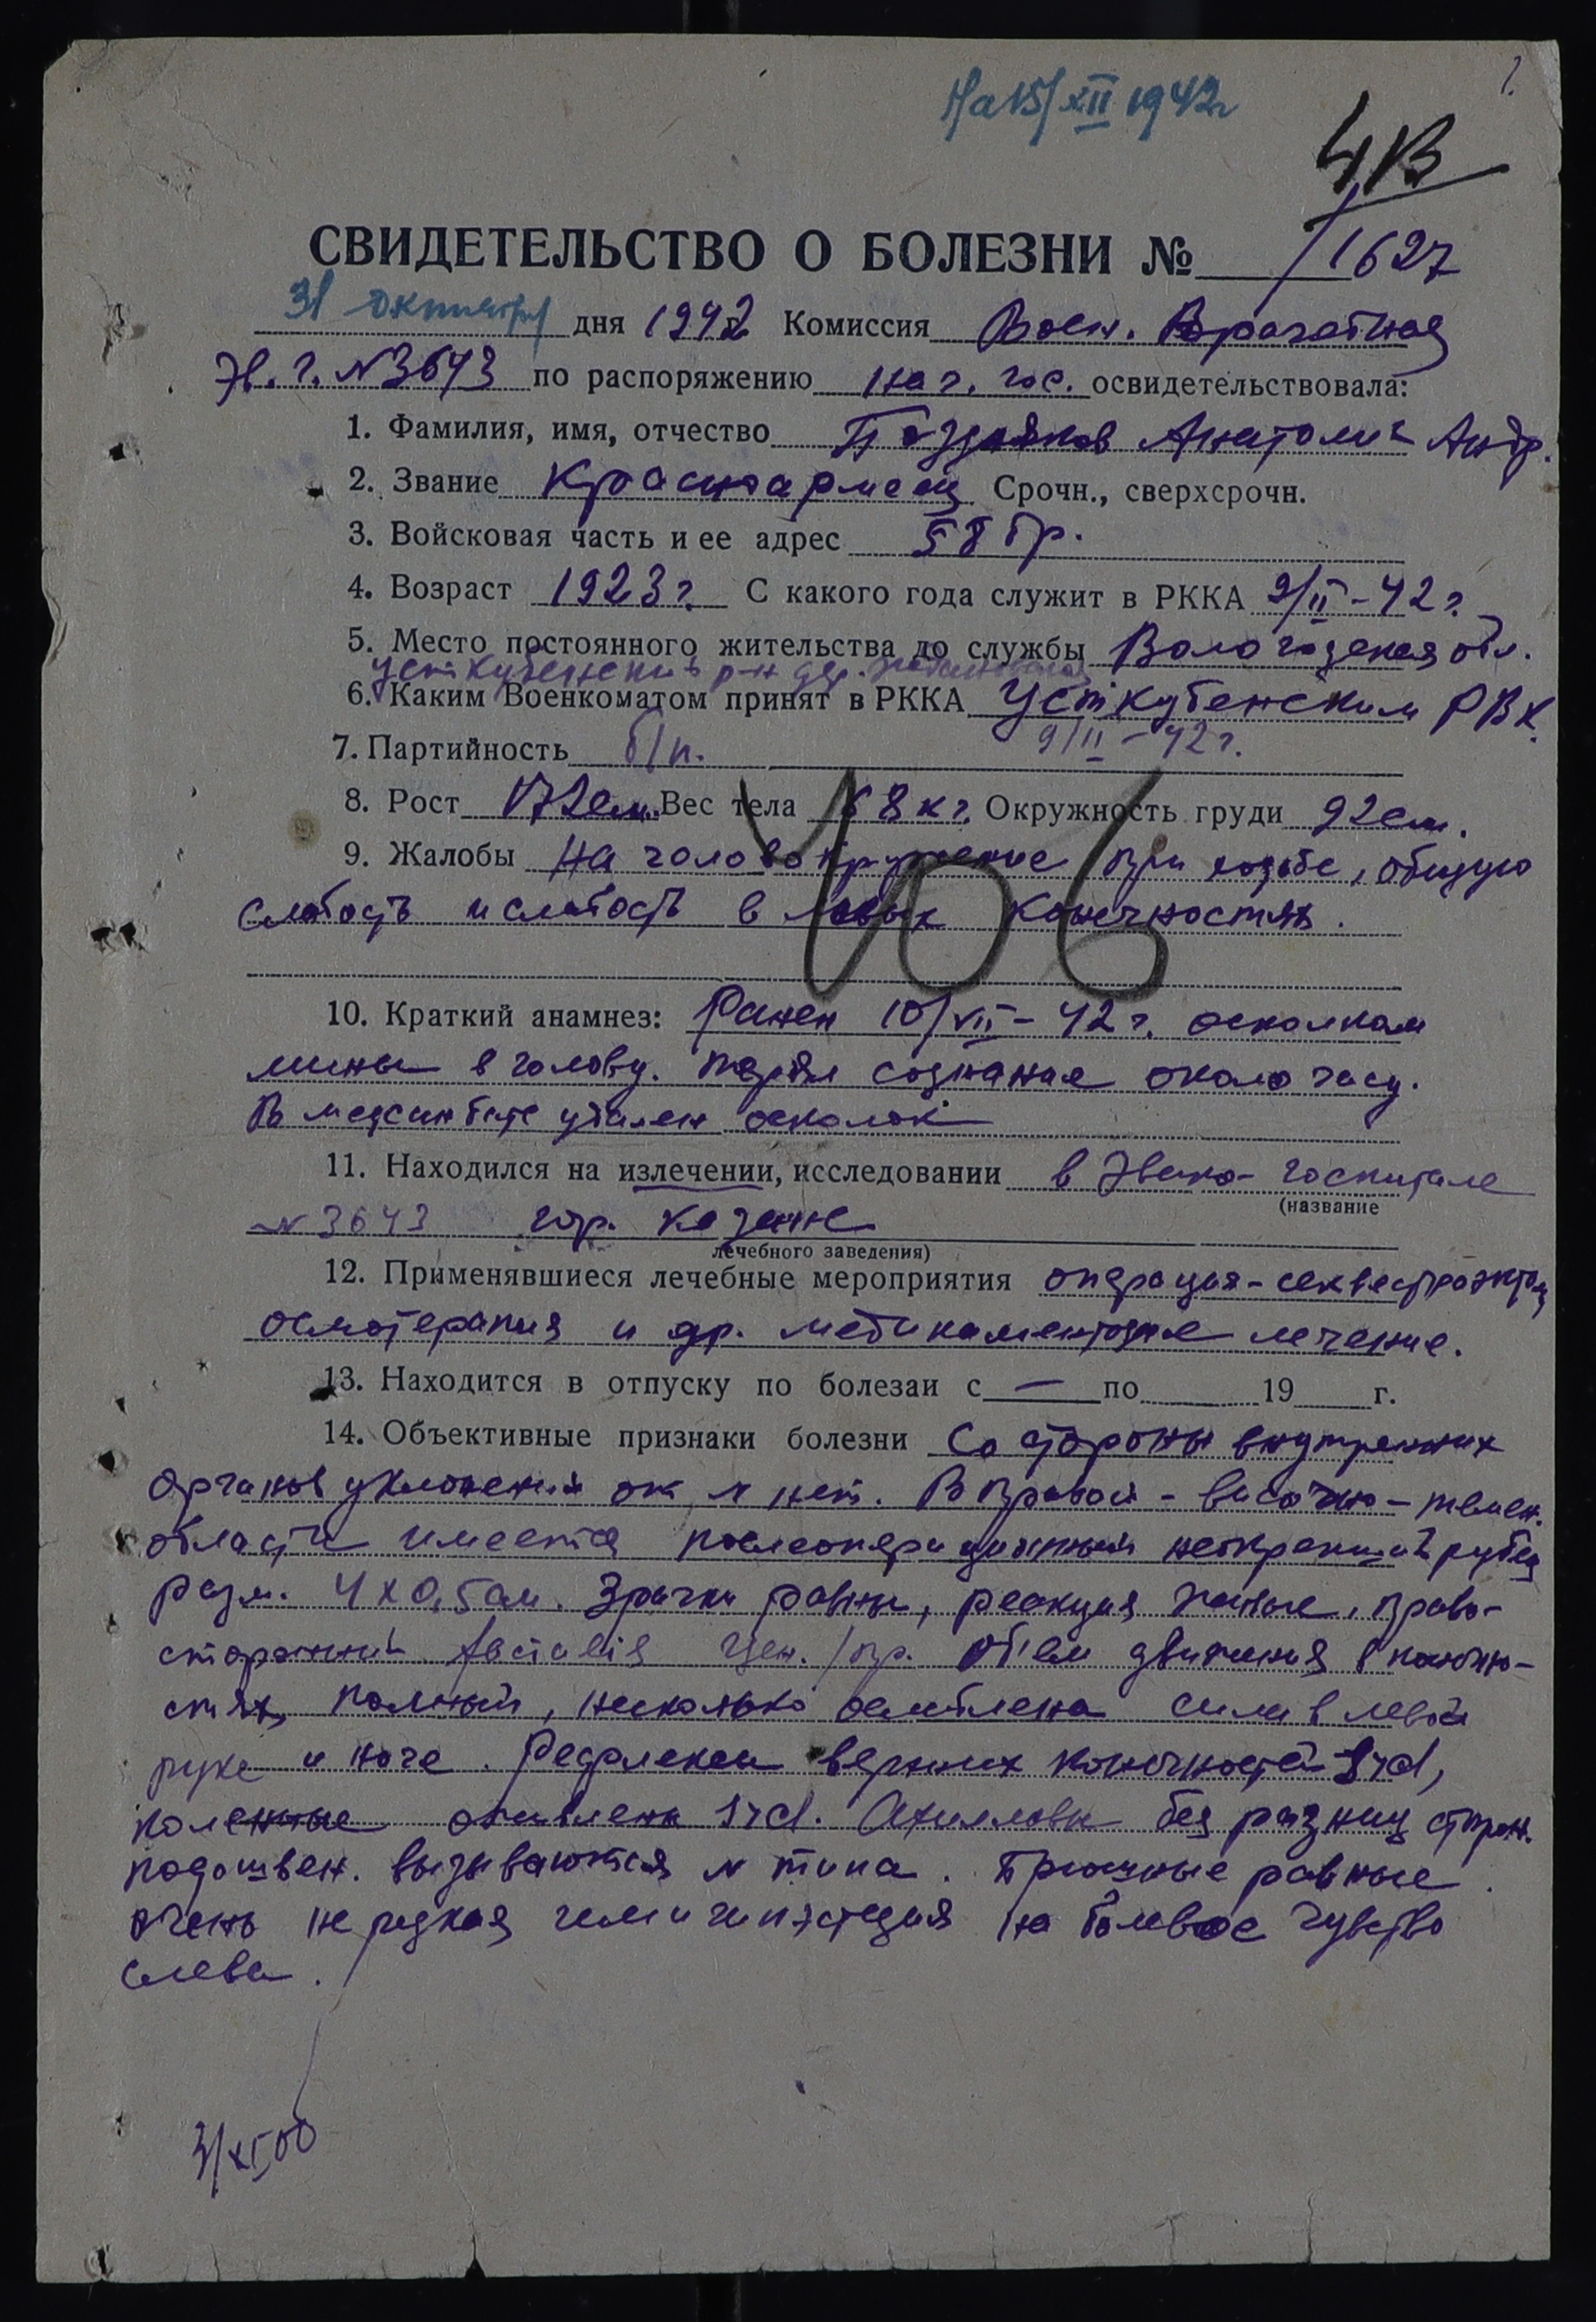 1.
На 15/XII 1942г
4В
СВИДЕТЕЛЬСТВО О БОЛЕЗНИ № /1627
31 октября дня 1942 г. Комиссия Воен. Врачебная
Эв. г. №3643 по распоряжению нач. гос. освидетельствовала:
1. Фамилия, имя, отчество Поздняков Анатолий Андр.
2. Звание Красноармеец Срочн., сверхсрочн.
3. Войсковая часть и ее адрес 58 бр.
4. Возраст 1923 г. С какого года служит в РККА 9/II-42 г.
5. Место постоянного жительства до службы Вологодская обл.
Усткубенский р-н дер.
6. Каким Военкоматом принят в РККА Усткубенским РВК
7. Партийность б/п. 9/II-42 г.
8. Рост 172см. Вес тела 68 кг. Окружность груди 92см.
9. Жалобы На головокружение при ходьбе, общую
слабость и слабость в левых конечностях.
106
10. Краткий анамнез: Ранен 10/VII-42 г. осколком
мины в голову. терял сознание около часу.
В медсанбате удален осколок
11. Находился на излечении, исследовании в Эвако-госпитале
(название
№3643 гор. Казани
лечебного заведения)
12. Применявшиеся лечебные мероприятия операция-секвестрэктом
осмотерапия и др. медикаментозное лечение.
13. Находится в отпуску по болезаи с — по 19 г.
14. Объективные признаки болезни Со стороны внутренних
органов уклонений от N нет. В правой-височно-темен.
области имеется послеоперационный неокрепший рубец
разм. 4 х 0,5 см. Зрачки равны, реакция живые, право-
сторонний facialis цен./пр. Об'ем движения в конечно-
стях полный, несколько ослаблена сила в левой
руке и ноге. Рефлексы верхних конечностей S>d,
коленные оживлены S>d. Ахилловы без разниц сторон.
подошвен. вызываются N типа. Брюшные равные.
очень не редкая гемигипэстезия на болевое чувство
слева.
3/XI